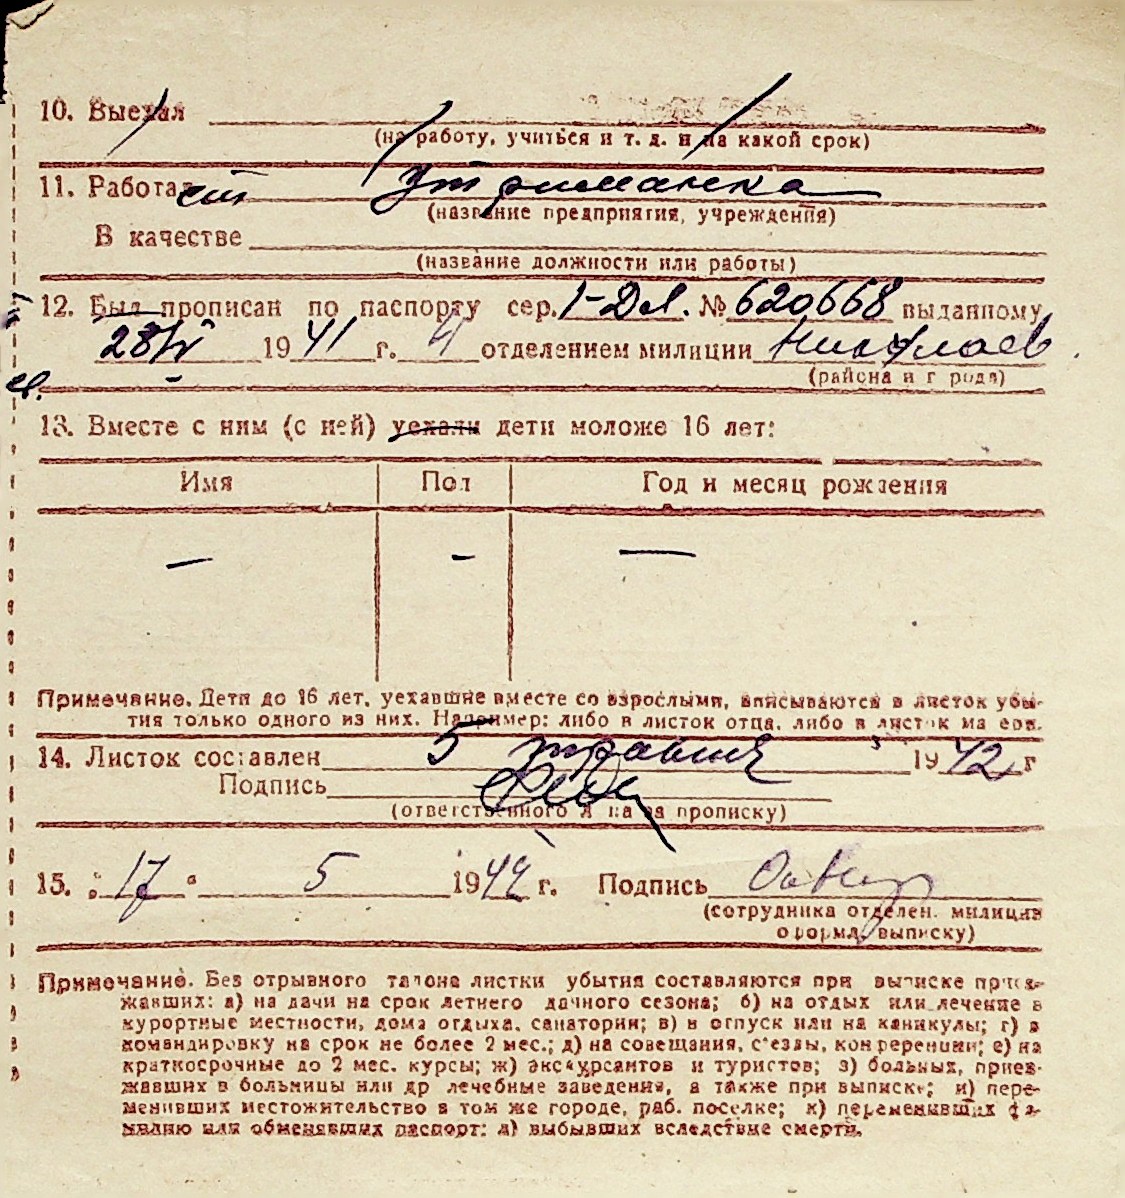 10. Выехал
(на работу, учиться и т. д. и на какой срок)
11. Работает Утриманка
(название предприятия, учреждения)
В качестве
(название должности или работы)
12. Был прописан по паспорту сер. 1-ДЛ. № 620668 выданному
28/IV 1941 г. 4 отделением милиции Николаев
(района и города)
13. Вместе с ним (с ней) уехали дети моложе 16 лет:
Имя Пол Год и месяц рождения
— — —
Примечание. Дети до 16 лет, уехавшие вместе со взрослыми, вписываются в листок убы-
тия только одного из них. Например: либо в листок отца, либо в листок матери.
14. Листок составлен 5 травня 1942 г
Подпись
(ответственного лица за прописку)
15. „17" 5 1942 г. Подпись
(сотрудника отделен. милиции
оформл. выписку)
Примечание. Без отрывного талона листки убытия составляются при выписке приез-
жавших: а) на дачи на срок летнего дачного сезона; б) на отдых или лечение в
курортные местности, дома отдыха, санатории; в) в отпуск или на каникулы; г) в
командировку на срок не более 2 мес.; д) на совещания, съезды, конференции; е) на
краткосрочные до 2 мес. курсы; ж) экскурсантов и туристов; з) больных, приез-
жавших в больницы или др лечебные заведения, а также при выписке; и) пере-
менивших местожительство в том же городе, раб. поселке; к) переменивших фа-
милию или обменявших паспорт; л) выбывших вследствие смерти.